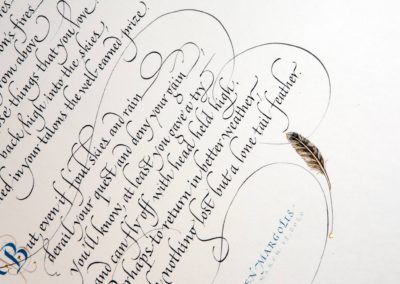 on's fires
from above
e things that you love.
back, high into the skies,
ed in your talons the well-earned prize.
But, even if foul skies and rain
derail your quest and deny your gain
you'll know, at least you gave a try,
and can fly off with head held high,
rhaps to return in better weather,
nothing lost but a lone tail feather.
EN MARGOLIS